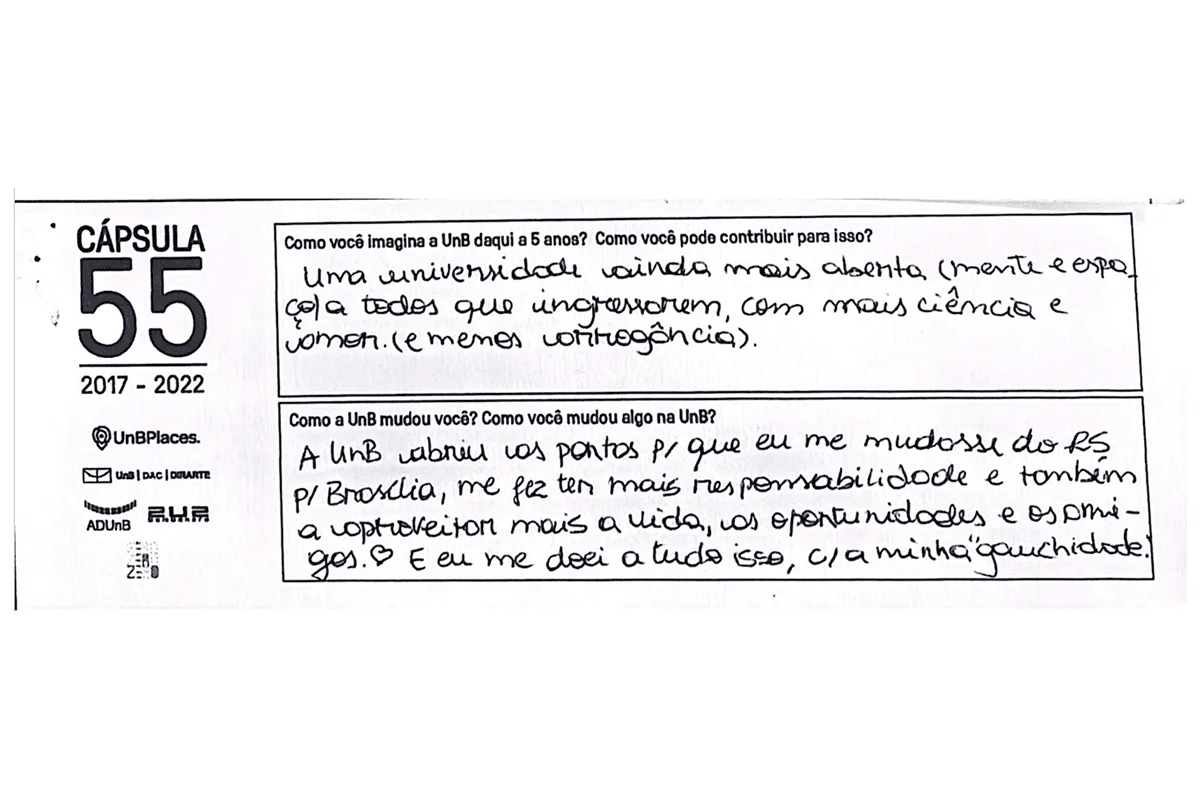 CÁPSULA
55
2017 - 2022
UnBPlaces.
UnB | DAC | DIRARTE
ADUnB
Como você imagina a UnB daqui a 5 anos? Como você pode contribuir para isso?
Uma universidade ainda mais aberta (mente e espa
ço) a todos que ingressarem, com mais ciência e
amor. (e menos arrogância).
Como a UnB mudou você? Como você mudou algo na UnB?
A UnB abriu as portas p/ que eu me mudasse do RS
p/ Brasília, me fez ter mais responsabilidade e também
a aproveitar mais a vida, as oportunidades e os ami-
gos.♡ E eu me doei a tudo isso, c/ a minha "gauchidade".